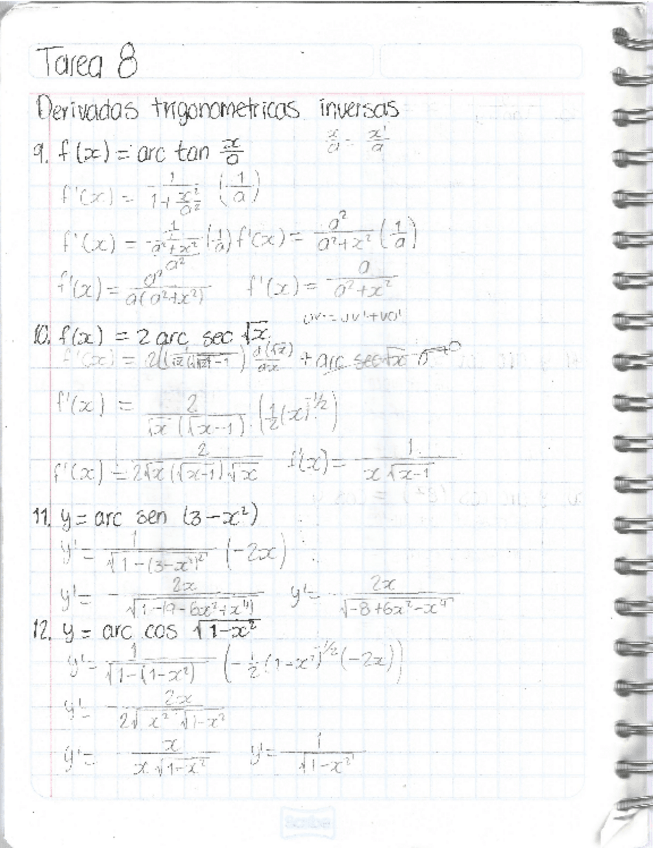 Tarea 8
Derivadas trigonometricas inversas
9. f(x) = arc tan x/a    x/a = x'/a
f'(x) = 1/(1+x²/a²) (1/a)
f'(x) = 1/((a²+x²)/a²) (1/a)  f'(x) = a²/(a²+x²) (1/a)
f'(x) = a²/(a(a²+x²))  f'(x) = a/(a²+x²)
10. f(x) = 2 arc sec √x    uv = uv'+vu'
+ arc sec √x
f'(x) = 2/(√x (√x-1)) · (1/2 (x)^-1/2)
f'(x) = 2/(2√x (√x-1) √x)  f'(x) = 1/(x √x-1)
11. y = arc sen (3-x²)
y' = 1/√(1-(3-x²)²) (-2x)
y' = - 2x/√(1-(9-6x²+x⁴))  y' = - 2x/√(-8+6x²-x⁴)
12. y = arc cos √(1-x²)
y' = 1/√(1-(1-x²)) (-1/2 (1-x²)^-1/2 (-2x))
y' = 2x/(2√x² √1-x²)
y' = x/(x √1-x²)  y' = 1/√(1-x²)
Scribe